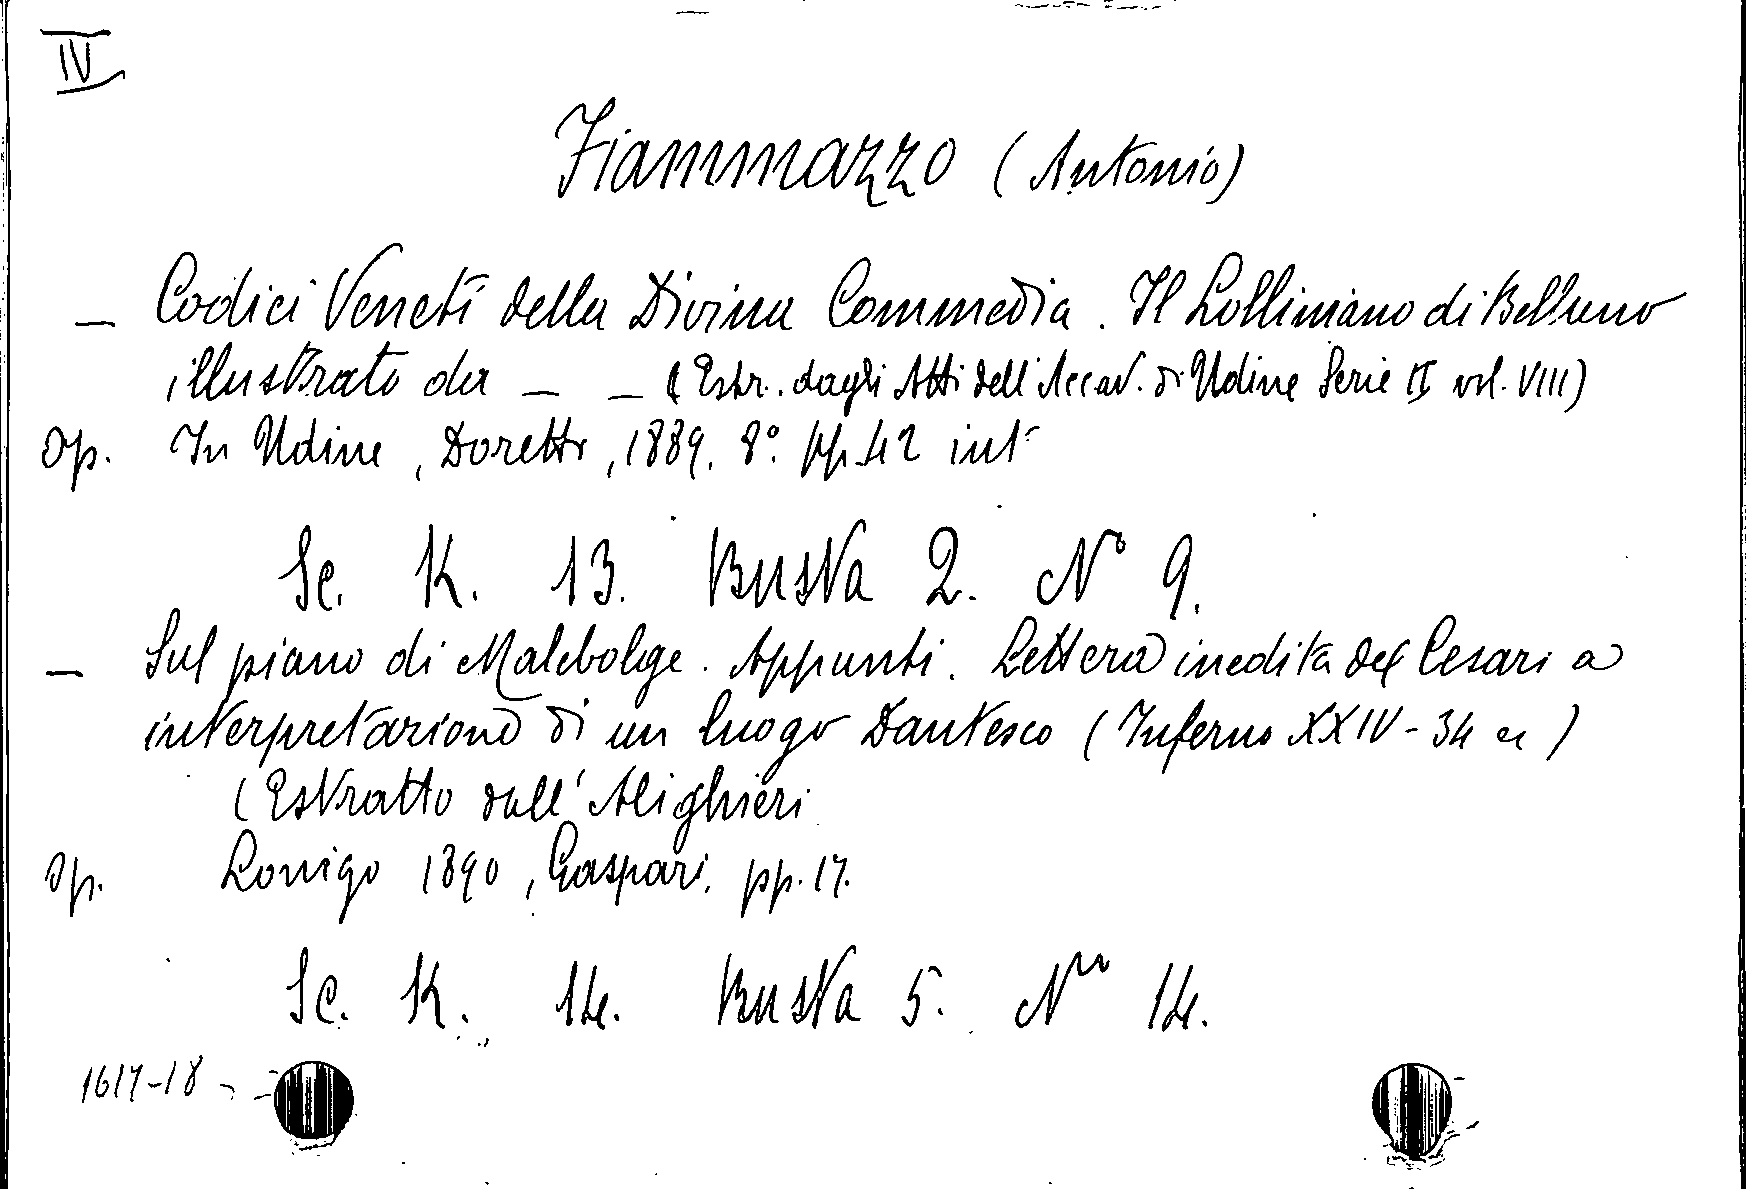 IV
Fiammazzo (Antonio)
_ Codici Veneti della Divina Commedia. Il Lolliniano di Belluno
illustrato da _ _ (Estr. dagli Atti dell'Accad. di Udine Serie II vol. VIII)
Op. In Udine, Doretti, 1889. 8° pp. 42 int
Sc. K. 13. Busta 2. N° 9.
_ Sul piano di Malebolge. Appunti. Lettera inedita del Cesari a
interpretazione di un luogo Dantesco (Inferno XXIV-34 )
(Estratto dall'Alighieri
Op. Lonigo 1890, Gaspari, pp. 17.
Sc. K. 14. Busta 5. No 14.
1617-18